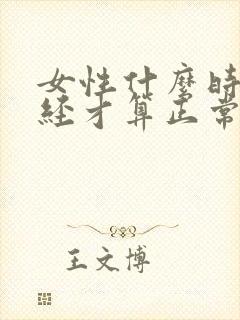 女性什麼時
經才算正常
王文博